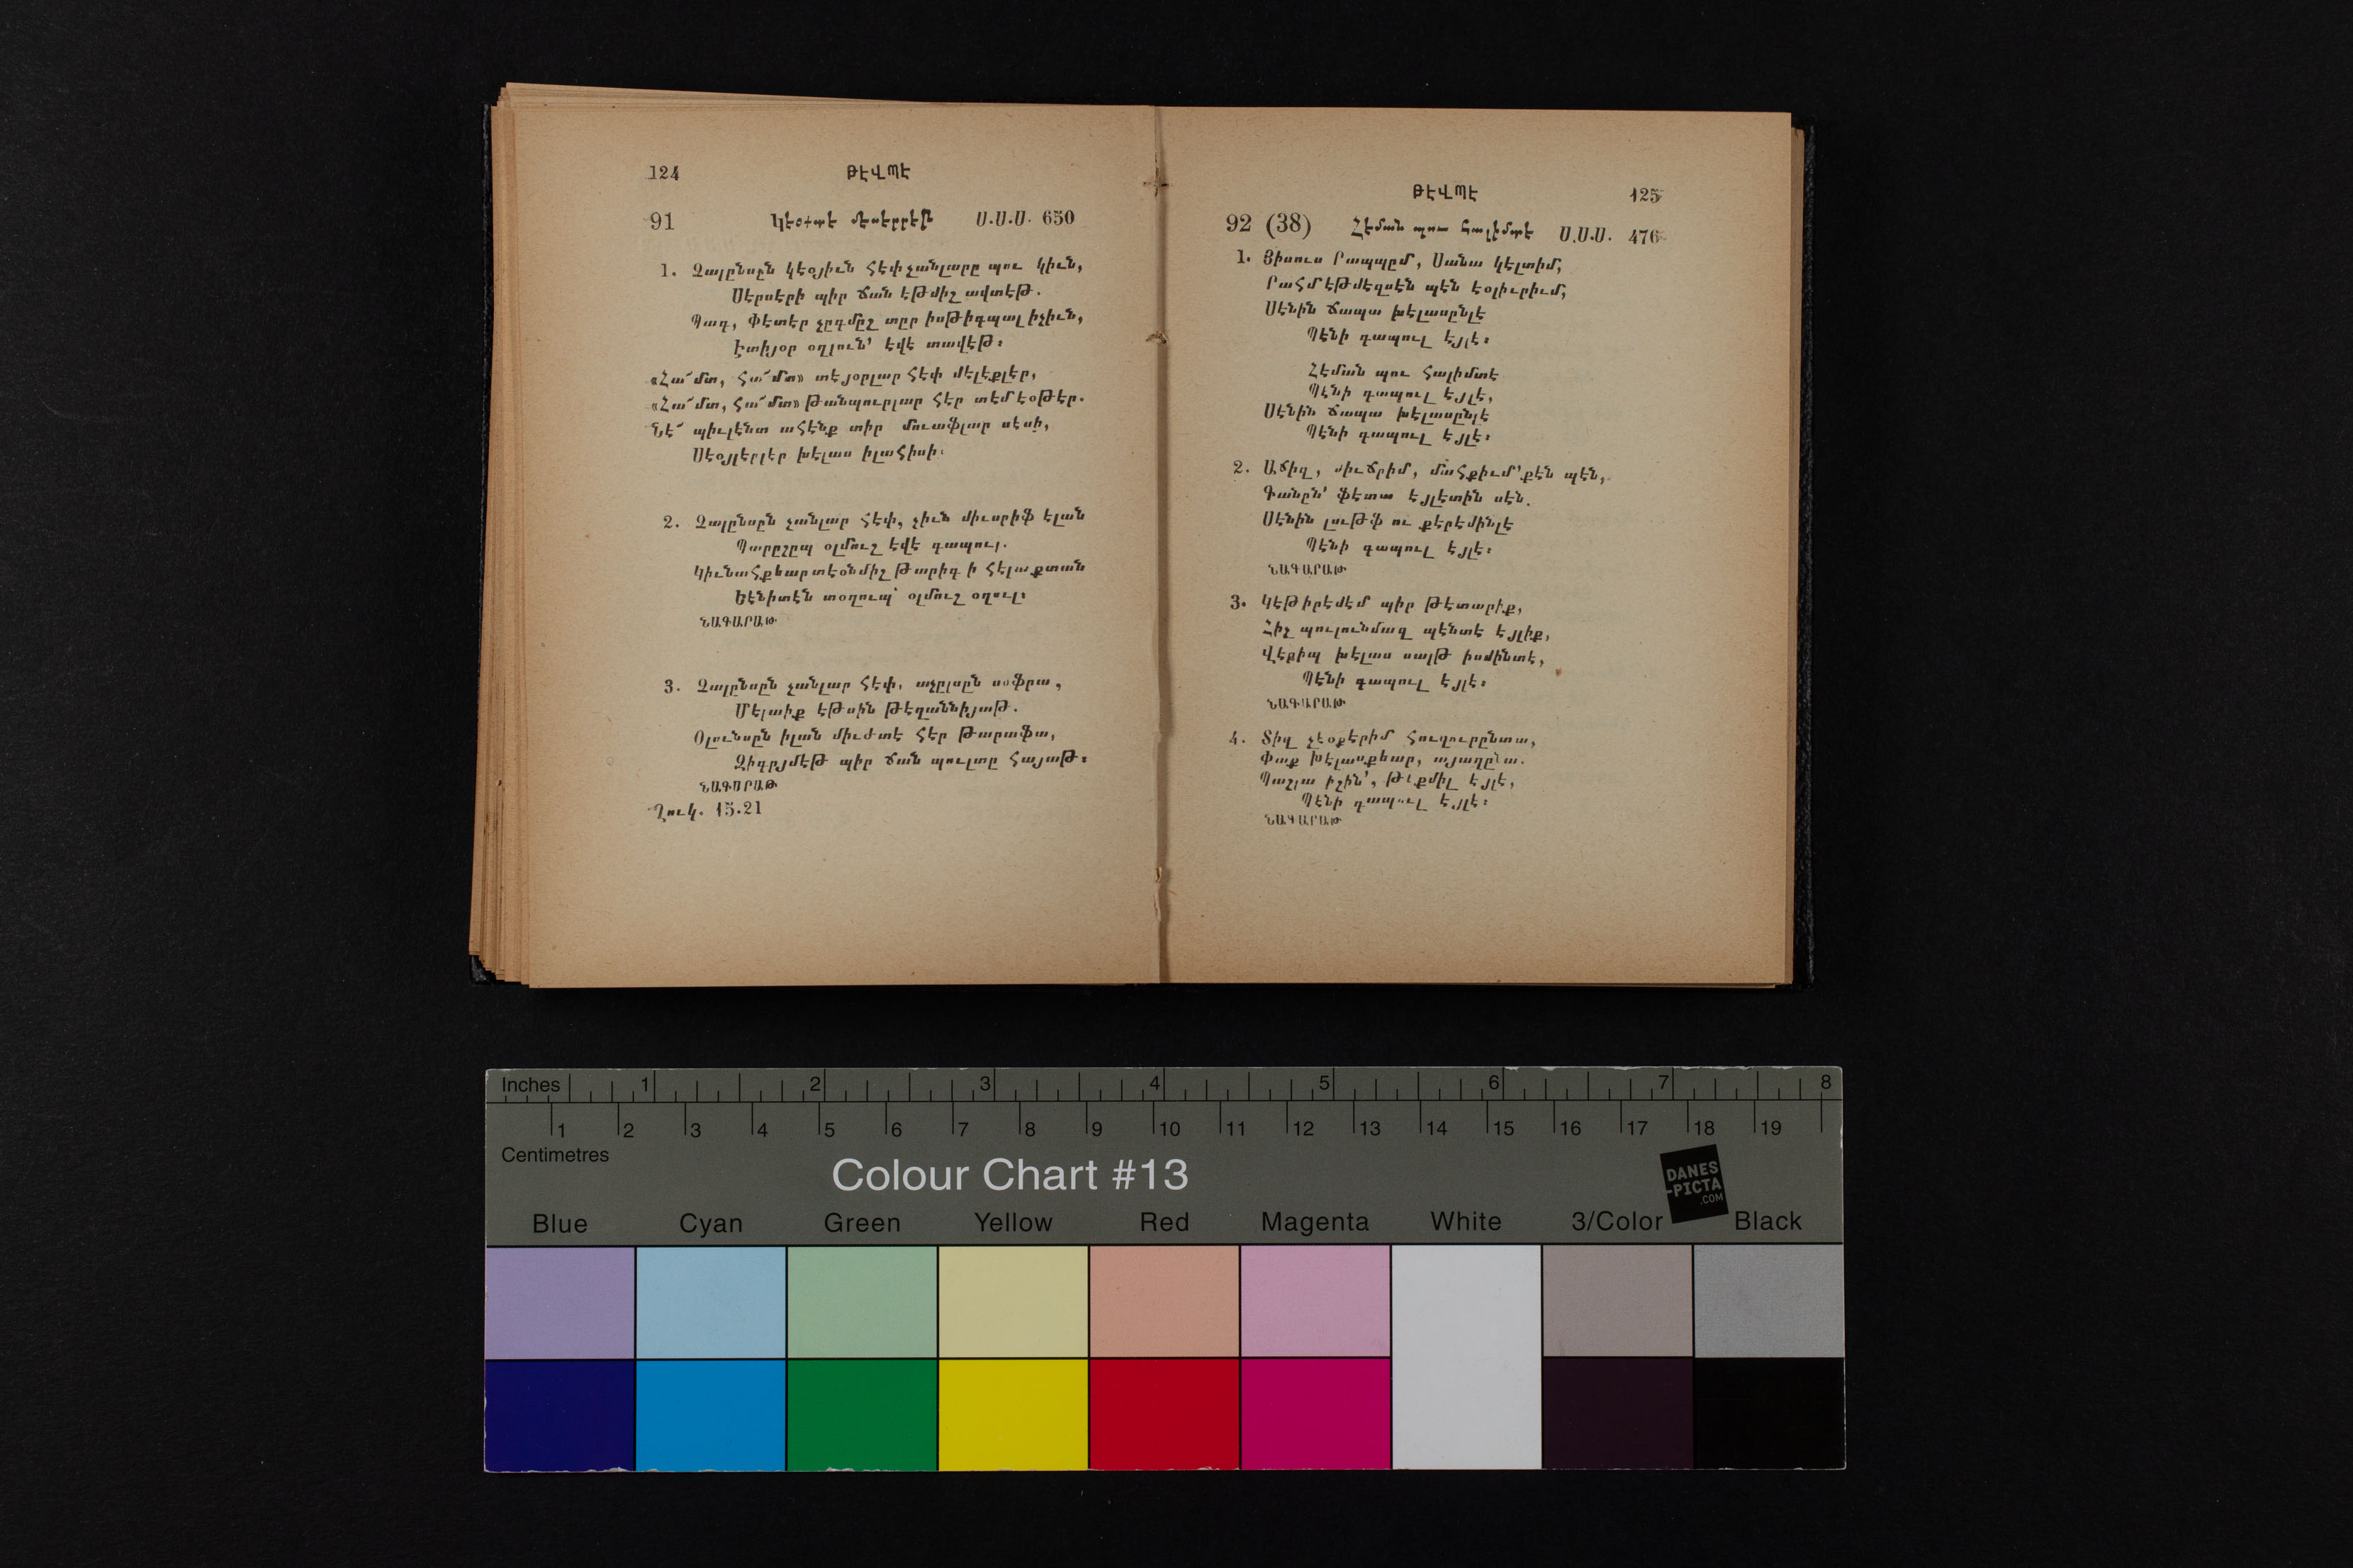 124 ԹԷՎՊԷ
91 Կէօքտէ Մէսէրրէթ Ս.Ս.Ս. 650
1. Չալընսըն կէօյիւն հէփ չանլարը պու կիւն,
Սէրսէրի պիր ճան էթմիշ ավտէթ.
Պագ, Փէտէր չըգմըշ տըր իսթիգպալ իչիւն,
Էտիյօր օղլուն՝ էվէ տավէթ։
«Հա՜մտ, հա՜մտ» տէյօրլար հէփ մէլէքլէր,
«Հա՜մտ, հա՜մտ» Թանպուրլար հէր տէմ էօթէր.
Նէ՜ պիւլէնտ ահէնք տիր մուաֆլար սէսի,
Սէօյլէրլէր խէլաս իլահիսի։
2. Չալընսըն չանլար հէփ, չիւն միւսրիֆ էլան
Պարըշըպ օլմուշ էվէ գապուլ.
Կիւնահքեար տէօնմիշ թարիգ ի հէլաքտան
Եէնիտէն տօղուպ՝ օլմուշ օղուլ։
ՆԱԳԱՐԱԹ
3. Չալընսըն չանլար հէփ, աչըլսըն սօֆրա,
Մէլաիք էթսին թէղաննիյաթ.
Օլունսըն իլան միւժտէ հէր թարաֆա,
Զիգըյմէթ պիր ճան պուլտը հայաթ։
ՆԱԳԱՐԱԹ
Ղուկ. 15.21
ԹԷՎՊԷ 125
92 (38) Հէման պու հալիմտէ Ս.Ս.Ս. 476
1. Յիսուս Րապպըմ, Սանա կէլտիմ,
Րահմ էթմէզսէն պէն էօլիւրիւմ,
Սէնին ճապա խէլասընլէ
Պէնի գապուլ էյլէ։
Հէման պու հալիմտէ
Պէնի գապուլ էյլէ,
Սէնին ճապա խէլասընլէ
Պէնի գապուլ էյլէ։
2. Աճիզ, միւճրիմ, մահքիւմ՝քէն պէն,
Գանըն՝ ֆէտա էյլէտին սէն.
Սէնին լութֆ ու քէրէմինլէ
Պէնի գապուլ էյլէ։
ՆԱԳԱՐԱԹ
3. Կէթիրէմէմ պիր թէտարիք,
Հիչ պուլունմազ պէնտէ էյլիք,
Վէքիպ խէլաս սալթ իսմինտէ,
Պէնի գապուլ էյլէ։
ՆԱԳԱՐԱԹ
4. Տիզ չէօքէրիմ հուզուրընտա,
Փաք խէլասքեար, այաղընա.
Պաշլա իշին՝, թէքմիլ էյլէ,
Պէնի գապուլ էյլէ։
ՆԱԳԱՐԱԹ
Inches 1 2 3 4 5 6 7 8
1 2 3 4 5 6 7 8 9 10 11 12 13 14 15 16 17 18 19
Centimetres
Colour Chart #13
DANES
-PICTA
.COM
Blue Cyan Green Yellow Red Magenta White 3/Color Black